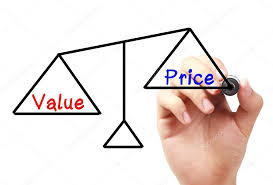 Value
Price